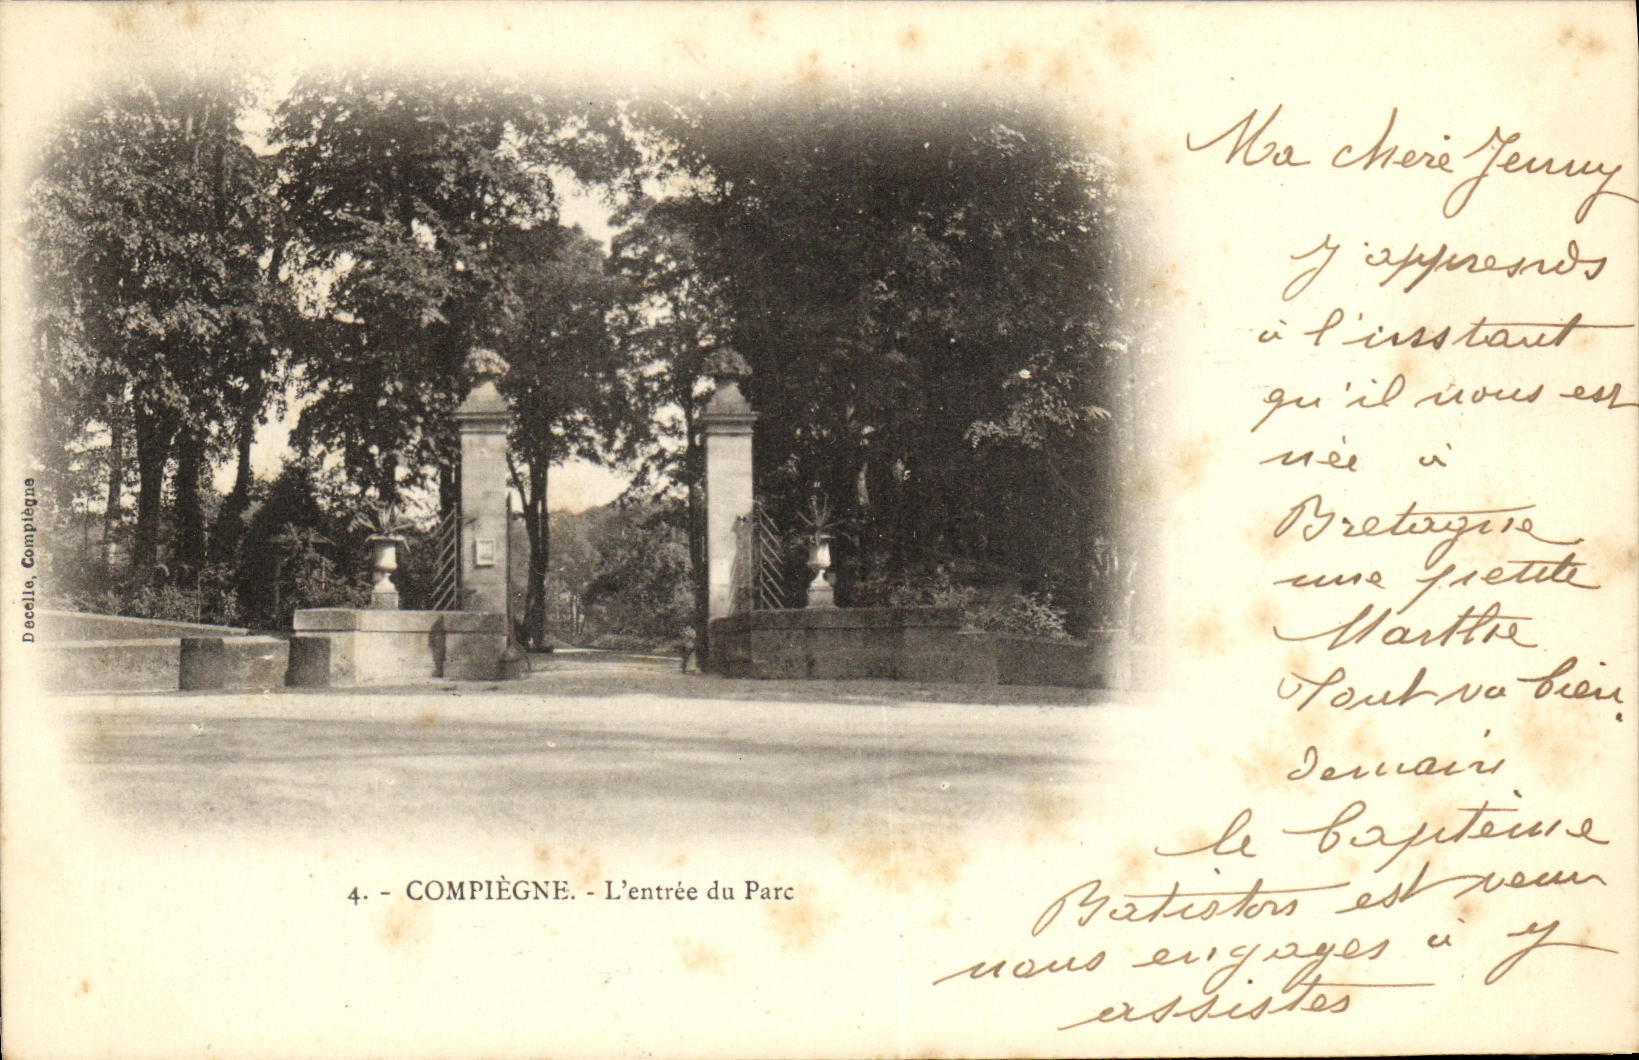 Ma chère Jenny
J'apprends
à l'instant
qu'il nous est
née à
Bretagne
une petite
Marthe
Tout va bien.
demain
le baptème
est venu
nous engager à y
assister
4. - COMPIÈGNE. - L'entrée du Parc
Decelle, Compiègne